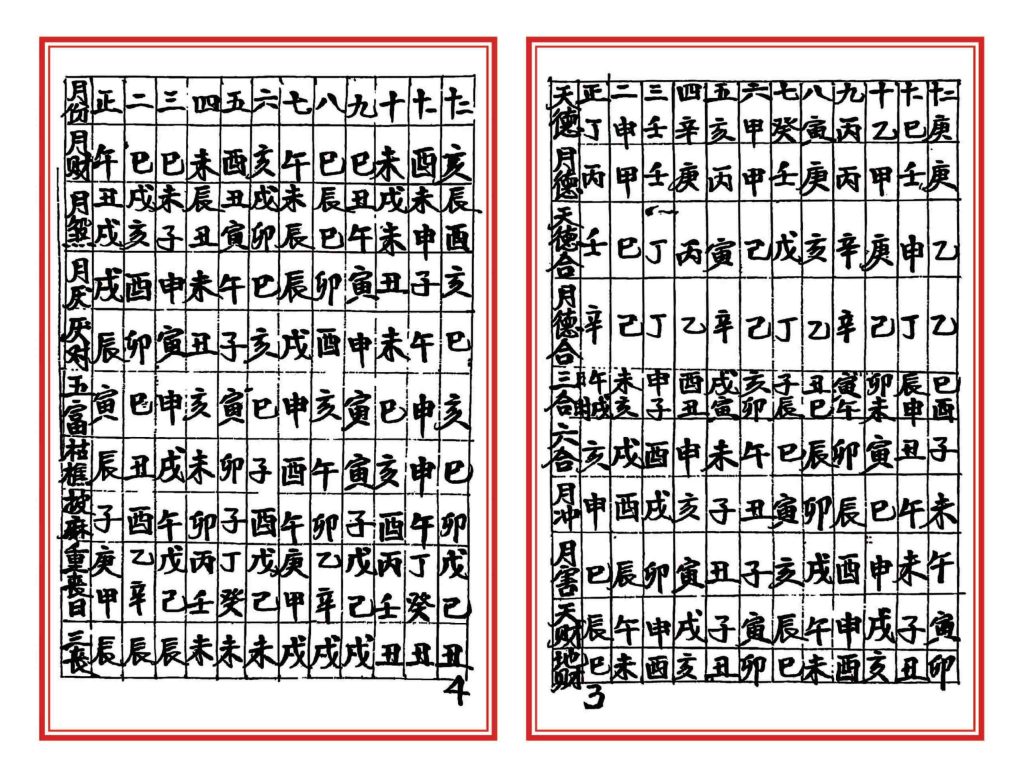 月份 正 二 三 四 五 六 七 八 九 十 十一 十二
月财 午 巳 巳 未 酉 亥 午 巳 巳 未 酉 亥
月煞 丑 戌 未 辰 丑 戌 未 辰 丑 戌 未 辰
戌 亥 子 丑 寅 卯 辰 巳 午 未 申 酉
月厌 戌 酉 申 未 午 巳 辰 卯 寅 丑 子 亥
厌对 辰 卯 寅 丑 子 亥 戌 酉 申 未 午 巳
五富 寅 巳 申 亥 寅 巳 申 亥 寅 巳 申 亥
枯樵 辰 丑 戌 未 卯 子 酉 午 寅 亥 申 巳
披麻 子 酉 午 卯 子 酉 午 卯 子 酉 午 卯
重丧日 庚 乙 戊 丙 丁 戊 庚 乙 戊 丙 丁 戊
甲 辛 己 壬 癸 己 甲 辛 己 壬 癸 己
三丧 辰 辰 辰 未 未 未 戌 戌 戌 丑 丑 丑
4
正 二 三 四 五 六 七 八 九 十 十一 十二
天德 丁 申 壬 辛 亥 甲 癸 寅 丙 乙 巳 庚
月德 丙 甲 壬 庚 丙 甲 壬 庚 丙 甲 壬 庚
天德合 壬 巳 丁 丙 寅 己 戊 亥 辛 庚 申 乙
月德合 辛 己 丁 乙 辛 己 丁 乙 辛 己 丁 乙
三合 午 未 申 酉 戌 亥 子 丑 寅 卯 辰 巳
戌 亥 子 丑 寅 卯 辰 巳 午 未 申 酉
六合 亥 戌 酉 申 未 午 巳 辰 卯 寅 丑 子
月冲 申 酉 戌 亥 子 丑 寅 卯 辰 巳 午 未
月害 巳 辰 卯 寅 丑 子 亥 戌 酉 申 未 午
天财 辰 午 申 戌 子 寅 辰 午 申 戌 子 寅
地财 巳 未 酉 亥 丑 卯 巳 未 酉 亥 丑 卯
3